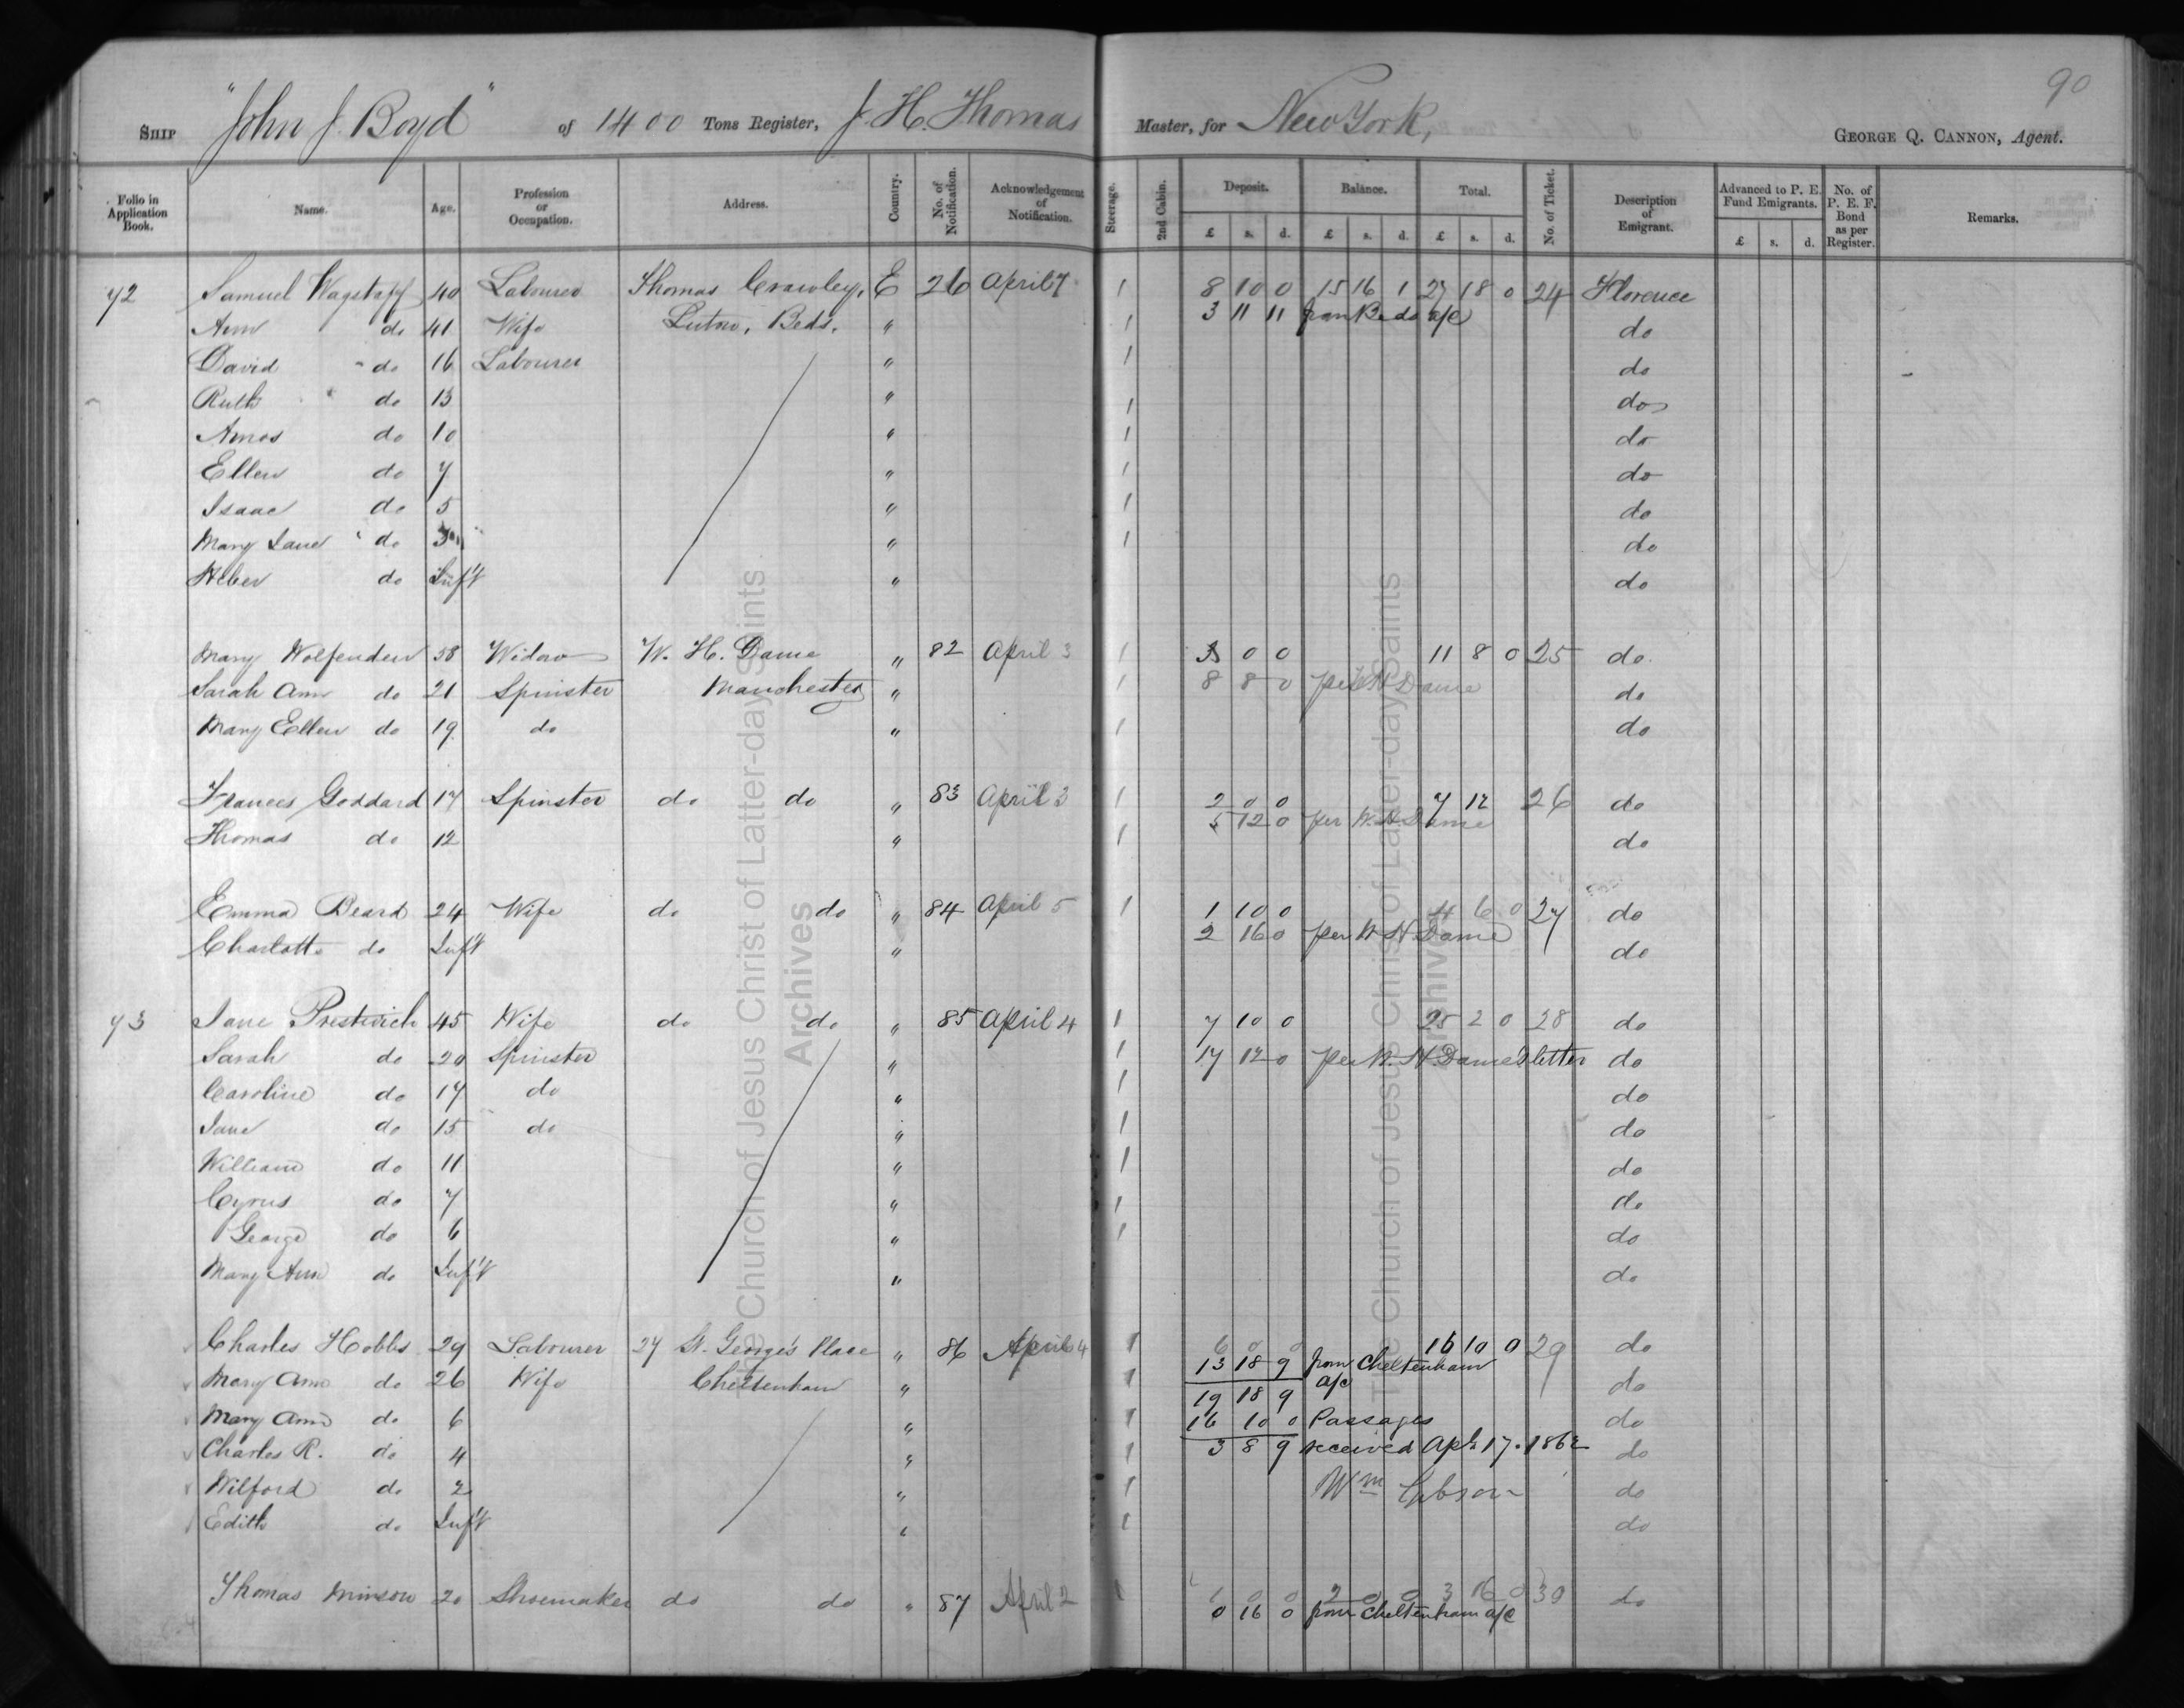 90
SHIP "John J. Boyd" of 1400 Tons Register, J. H. Thomas Master, for New York, GEORGE Q. CANNON, Agent.
Folio in Application Book. Name. Age. Profession or Occupation. Address. Country. No. of Notification. Acknowledgement of Notification. Steerage. 2nd Cabin. Deposit. £ s. d. Balance. £ s. d. Total. £ s. d. No. of Ticket. Description of Emigrant. Advanced to P. E. Fund Emigrants. £ s. d. No. of P. E. F. Bond as per Register. Remarks.
72 Samuel Wagstaff 40 Labourer Thomas Crawley, E 26 April 7 1 8 10 0 15 16 1 27 18 0 24 Florence
Ann do 41 Wife Luton, Beds. " 1 3 11 11 from Beds a/c do
David do 16 Labourer " 1 do
Ruth do 13 " 1 do
Amos do 10 " 1 do
Ellen do 7 " 1 do
Isaac do 5 " 1 do
Mary Jane do 3 " 1 do
Heber do Inf't " do
Mary Wolfenden 58 Widow W. H. Dame " 82 April 3 1 3 0 0 11 8 0 25 do
Sarah Ann do 21 Spinster Manchester " 1 8 8 0 per W H Dame do
Mary Ellen do 19 do " 1 do
Frances Goddard 17 Spinster do do " 83 April 3 1 2 0 0 7 12 26 do
Thomas do 12 " 1 5 12 0 per W. H. Dame do
Emma Beard 24 Wife do do " 84 April 5 1 1 10 0 4 6 0 27 do
Charlotte do Inf't " 2 16 0 per W H Dame do
73 Jane Prestwich 45 Wife do do " 85 April 4 1 7 10 0 25 2 0 28 do
Sarah do 20 Spinster " 1 17 12 0 per W. H. Dame's letter do
Caroline do 17 do " 1 do
Jane do 15 do " 1 do
William do 11 " 1 do
Cyrus do 7 " 1 do
George do 6 " 1 do
Mary Ann do Inf't " do
Charles Hobbs 29 Labourer 27 St. George's Place " 86 April 4 1 6 0 0 16 10 0 29 do
13 18 9 from Cheltenham a/c
Mary Ann do 26 Wife Cheltenham " 1 19 18 9 do
Mary Ann do 6 " 1 16 10 0 Passages do
Charles R. do 4 " 1 3 8 9 received Apl. 17. 1862 do
Wilford do 2 " 1 Wm Gibson do
Edith do Inf't " 1 do
Thomas Minson 20 Shoemaker do do " 87 April 2 1 1 0 0 2 0 0 3 16 0 30 do
0 16 0 from Cheltenham a/c
The Church of Jesus Christ of Latter-day Saints
Archives
The Church of Jesus Christ of Latter-day Saints
Archives